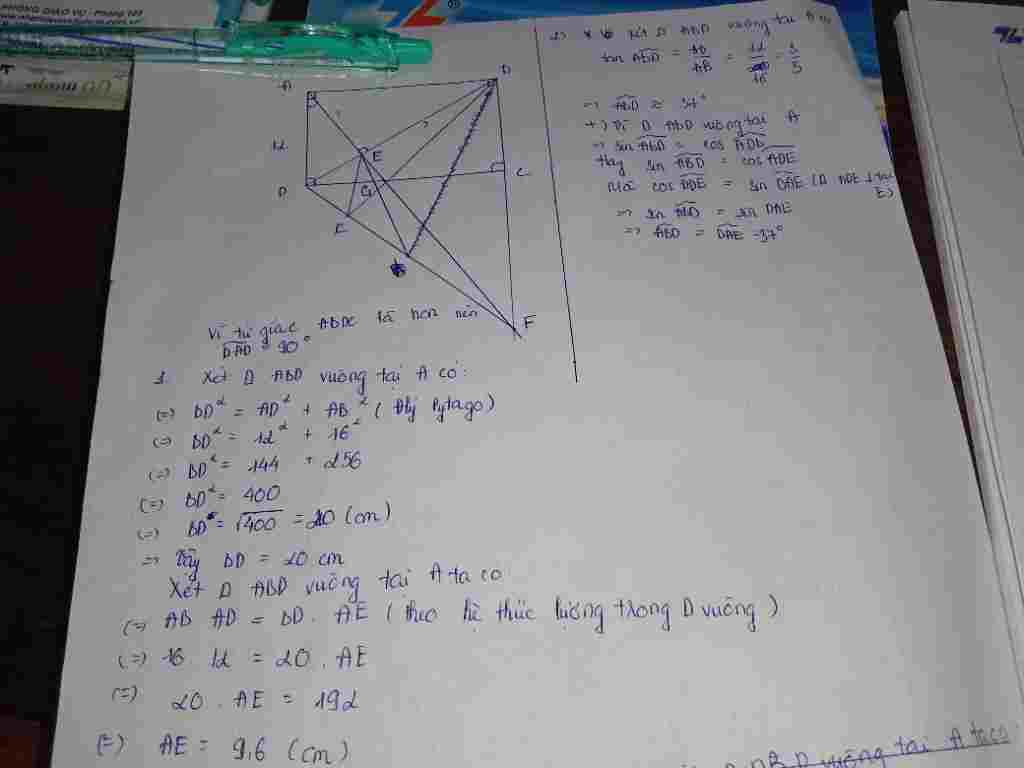 PHÒNG GIÁO VỤ - Phòng 109
A
B
12
E
D
G
C
F
Vì tứ giác ABDC là hcn nên
BAD = 90°
1. Xét D ABD vuông tại A có:
(=) BD² = AD² + AB² (Đlý Pytago)
(=) BD² = 12² + 16²
(=) BD² = 144 + 256
(=) BD² = 400
(=) BD = √400 = 20 (cm)
=> Vậy BD = 20 cm
Xét D ABD vuông tại A ta có
(=) AB AD = BD . AE (theo hệ thức lượng trong D vuông)
(=) 16 12 = 20 . AE
(=) 20 . AE = 192
(=) AE = 9,6 (cm)
2) * Xét D ABD vuông tại A
tan ABD = AD / AB = 12 / 16 =
=> ABD ≈ 37°
+) Vì D ABD vuông tại A
=> sin ABD = cos ADB
Hay sin ABD = cos ADE
Mà cos ADE = sin DAE (D ADE tại
E)
=> sin ABD = sin DAE
=> ABD = DAE = 37°
vuông tại A ta có